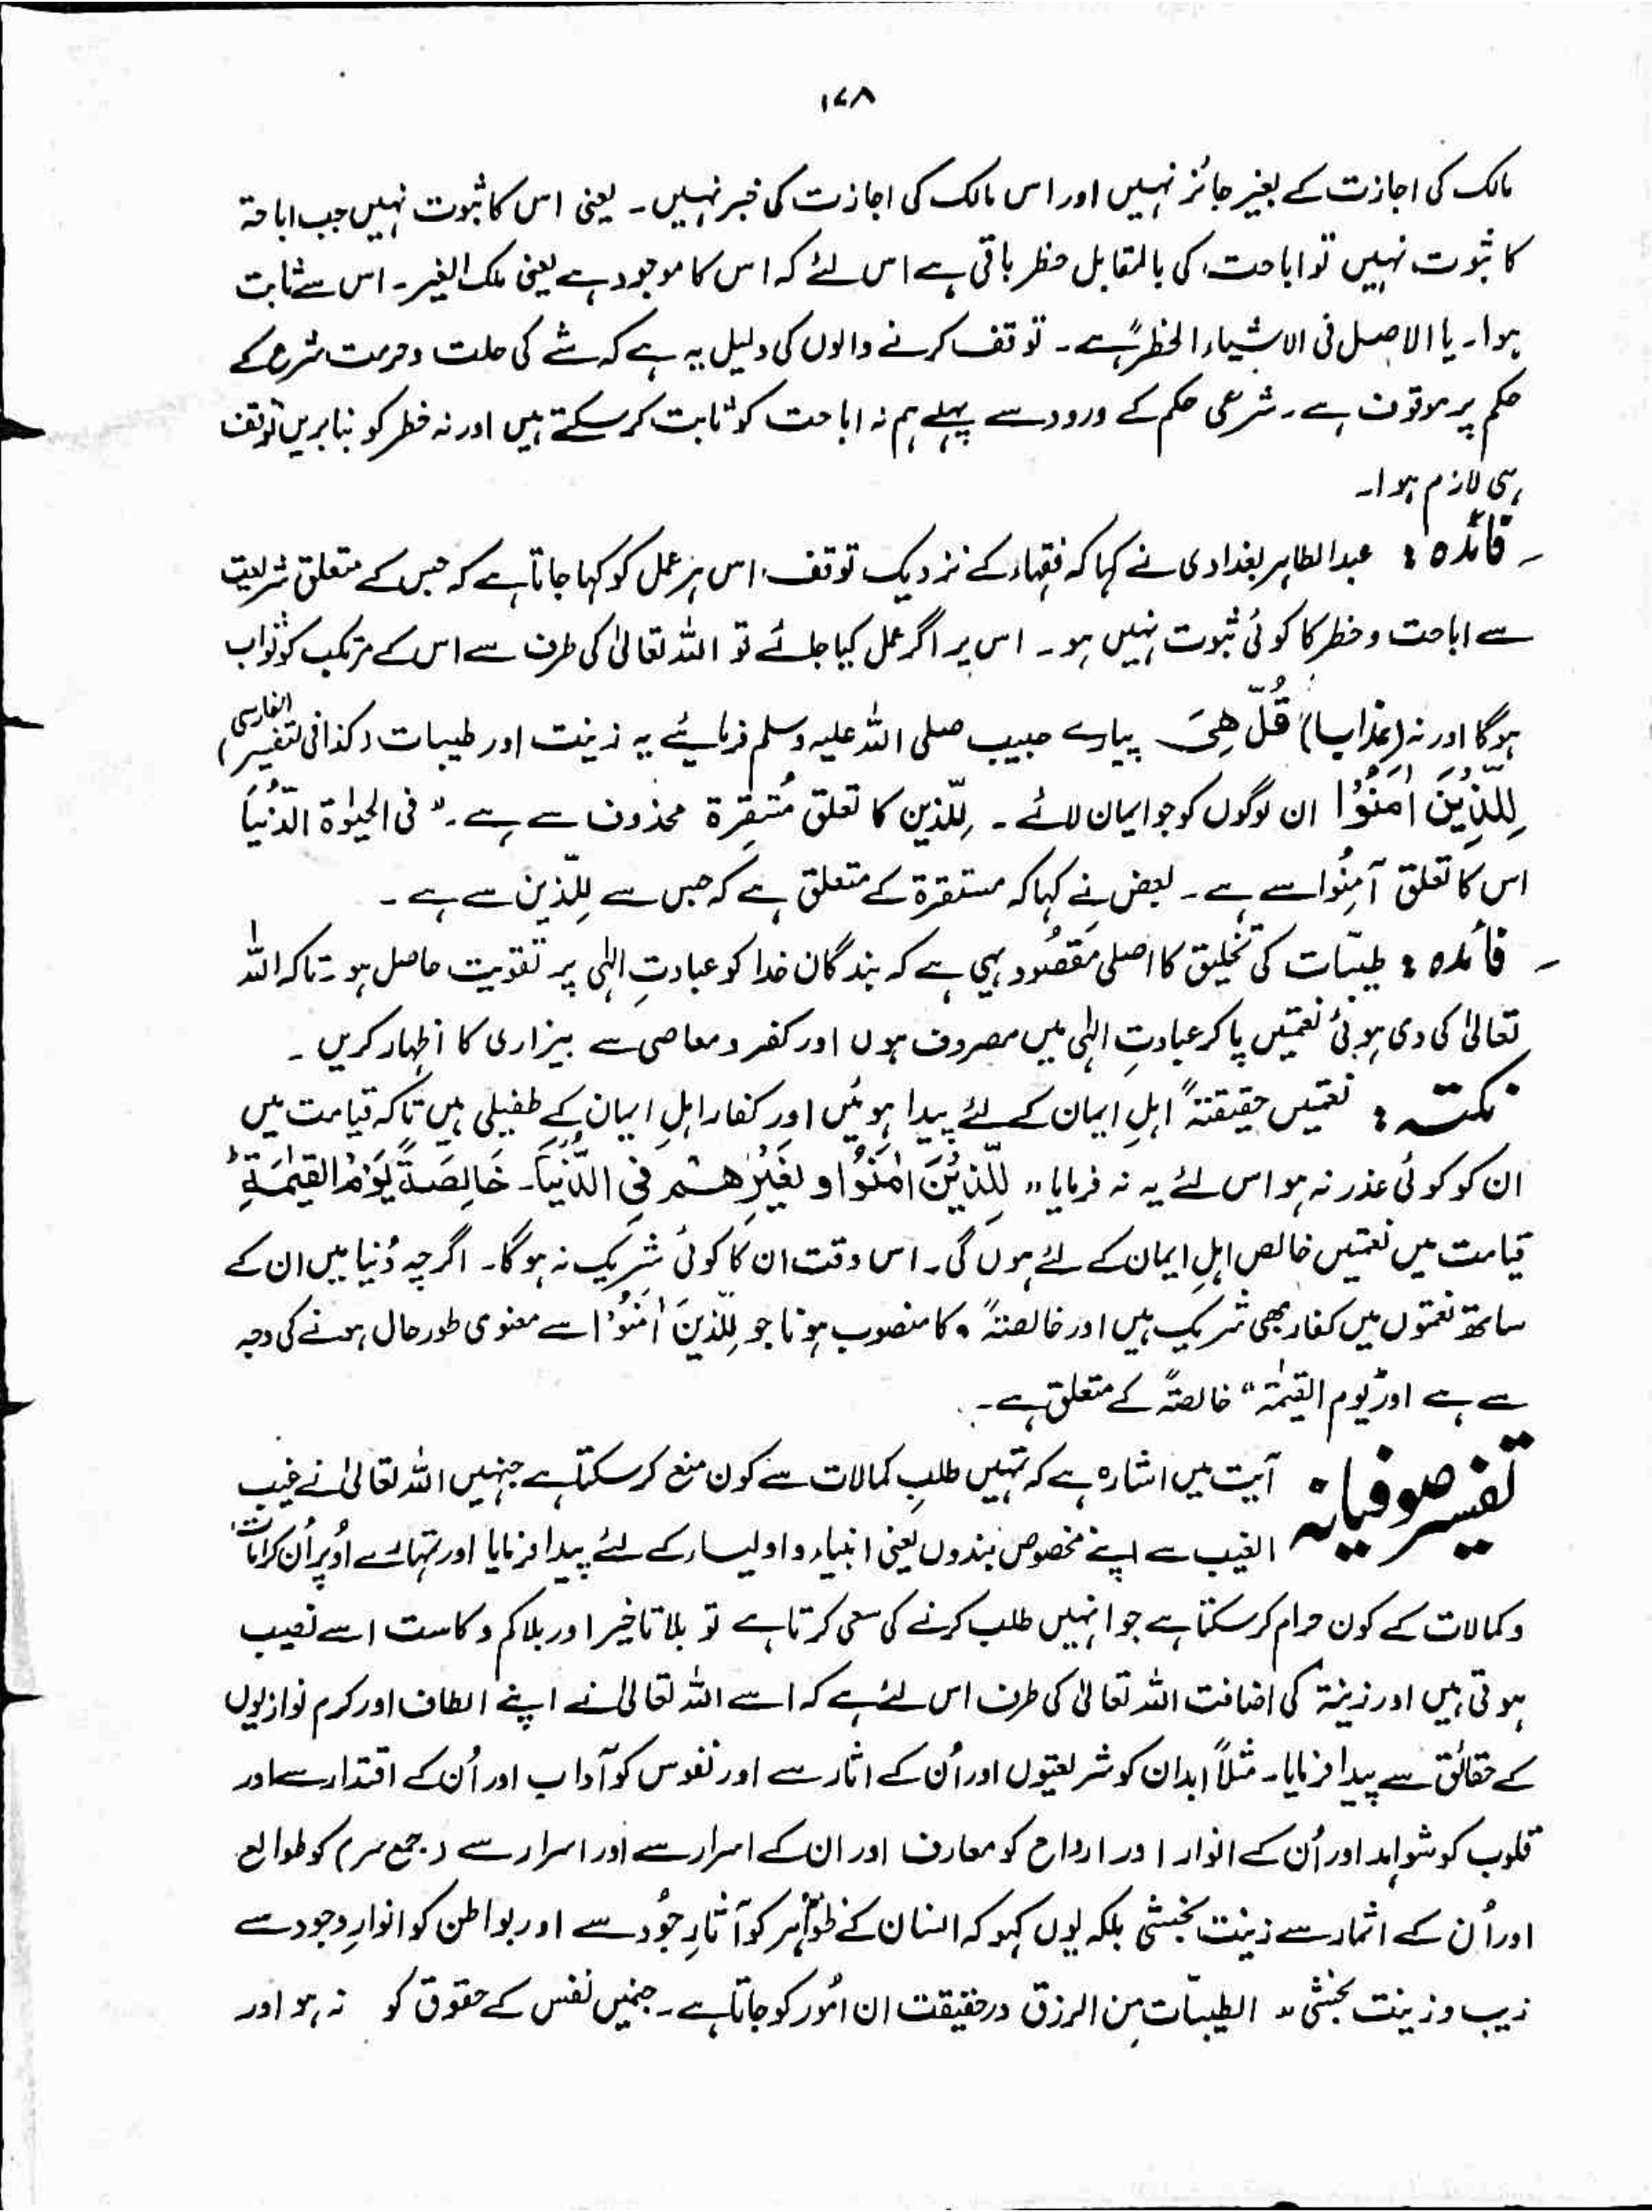 ۱۷۸
مالک کی اجازت کے بغیر جائز نہیں اور اس مالک کی اجازت کی خبر نہیں۔ یعنی اس کا ثبوت نہیں جب اباحة
کا ثبوت نہیں تو اباحت کی بالمقابل حظر باقی ہے اس لئے کہ اس کا موجود ہے یعنی ملک الغیر۔ اس سے ثابت
ہوا۔ یا الاصل فی الاشیاء الحظر ہے۔ توقف کرنے والوں کی دلیل یہ ہے کہ شے کی حلت و حرمت شرع کے
حکم پر موقوف ہے۔ شرعی حکم کے ورود سے پہلے ہم نہ اباحت کو ثابت کر سکتے ہیں اور نہ خطر کو بنا بریں توقف
ہی لازم ہوا۔
فائدہ : عبدالطاہر بغدادی نے کہا کہ فقہاء کے نزدیک توقف اس ہر عمل کو کہا جاتا ہے کہ جس کے متعلق شریعت
سے اباحت و خطر کا کوئی ثبوت نہیں ہو۔ اس پر اگر عمل کیا جائے تو اللہ تعالیٰ کی طرف سے اس کے مرتکب کو ثواب
ہوگا اور نہ (عذاب) قُلْ هِیَ پیارے حبیب صلی اللہ علیہ وسلم فرمائیے یہ زینت اور طیبات (کذافی تفسیر الفارسی)
لِلَّذِیْنَ اٰمَنُوْا ان لوگوں کو جو ایمان لائے۔ لِلّذین کا تعلق مُستقِرۃ محذوف سے ہے۔ " فی الحیوٰۃ الدّنیَا
اس کا تعلق آمِنُوا سے ہے۔ بعض نے کہا کہ مستقرۃ کے متعلق ہے کہ جس سے لِلّذین سے ہے۔
فائدہ : طیبّات کی تخلیق کا اصلی مقصُود یہی ہے کہ بندگان خدا کو عبادتِ الٰہی پر تقویت حاصل ہو۔ تاکہ اللہ
تعالیٰ کی دی ہوئی نعمتیں پاکر عبادتِ الٰہی میں مصروف ہوں اور کفر و معاصی سے بیزاری کا اظہار کریں۔
نکتہ : نعمتیں حقیقتۃً اہلِ ایمان کے لئے پیدا ہوئیں اور کفار اہلِ ایمان کے طفیلی ہیں تاکہ قیامت میں
ان کو کوئی عذر نہ ہو اس لئے یہ نہ فرمایا " لِلَّذِیْنَ اٰمَنُوْا و لِغَیْرِهِمْ فِی الدُّنْیَا۔ خَالِصَةً یَّوْمَ الْقِیٰمَةِ ؕ
قیامت میں نعمتیں خالص اہلِ ایمان کے لئے ہوں گی۔ اس وقت ان کا کوئی شریک نہ ہوگا۔ اگرچہ دُنیا میں ان کے
ساتھ نعمتوں میں کفار بھی شریک ہیں اور خالصۃً کا منصوب ہونا جو لِلّذِینَ اٰمَنُوْا سے معنوی طور حال ہونے کی وجہ
سے ہے اور یوم القیٰمۃ " خالصۃً کے متعلق ہے۔
تفسیر صوفیانہ آیت میں اشارہ ہے کہ تمہیں طلبِ کمالات سے کون منع کر سکتا ہے جنہیں اللہ تعالیٰ نے غیب
الغیب سے اپنے مخصوص بندوں یعنی انبیاء و اولیاء کے لئے پیدا فرمایا اور تمہارے اُوپر اُن کرامات
و کمالات کے کون حرام کر سکتا ہے جو انہیں طلب کرنے کی سعی کرتا ہے تو بلا تاخیر اور بلا کم و کاست اسے نصیب
ہوتی ہیں اور زینۃ کی اضافت اللہ تعالیٰ کی طرف اس لئے ہے کہ اسے اللہ تعالیٰ نے اپنے الطاف اور کرم نوازیوں
کے حقائق سے پیدا فرمایا۔ مثلاً ابدان کو شریعتوں اور اُن کے اثار سے اور نفوس کو آداب اور اُن کے اقتدار سے اور
قلوب کو شواہد اور اُن کے انوار اور ارواح کو معارف اور ان کے اسرار سے اور اسرار سے (جمع سر) کو طوالع
اور اُن کے اثمار سے زینت بخشی بلکہ یوں کہو کہ انسان کے ظواہر کو آثارِ جُود سے اور بواطن کو انوارِ وجود سے
زیب و زینت بخشی " الطیبّات مِن الرزق درحقیقت ان امُور کو جاتا ہے۔ جنہیں نفس کے حقوق کو نہ ہو اور